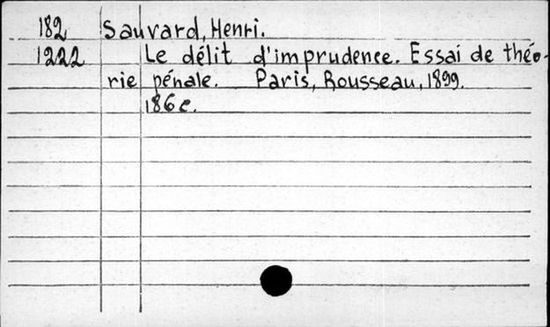 182 Sauvard, Henri.
1222 Le délit d'imprudence. Essai de théo-
rie pénale. Paris, Rousseau, 1899.
186 c.